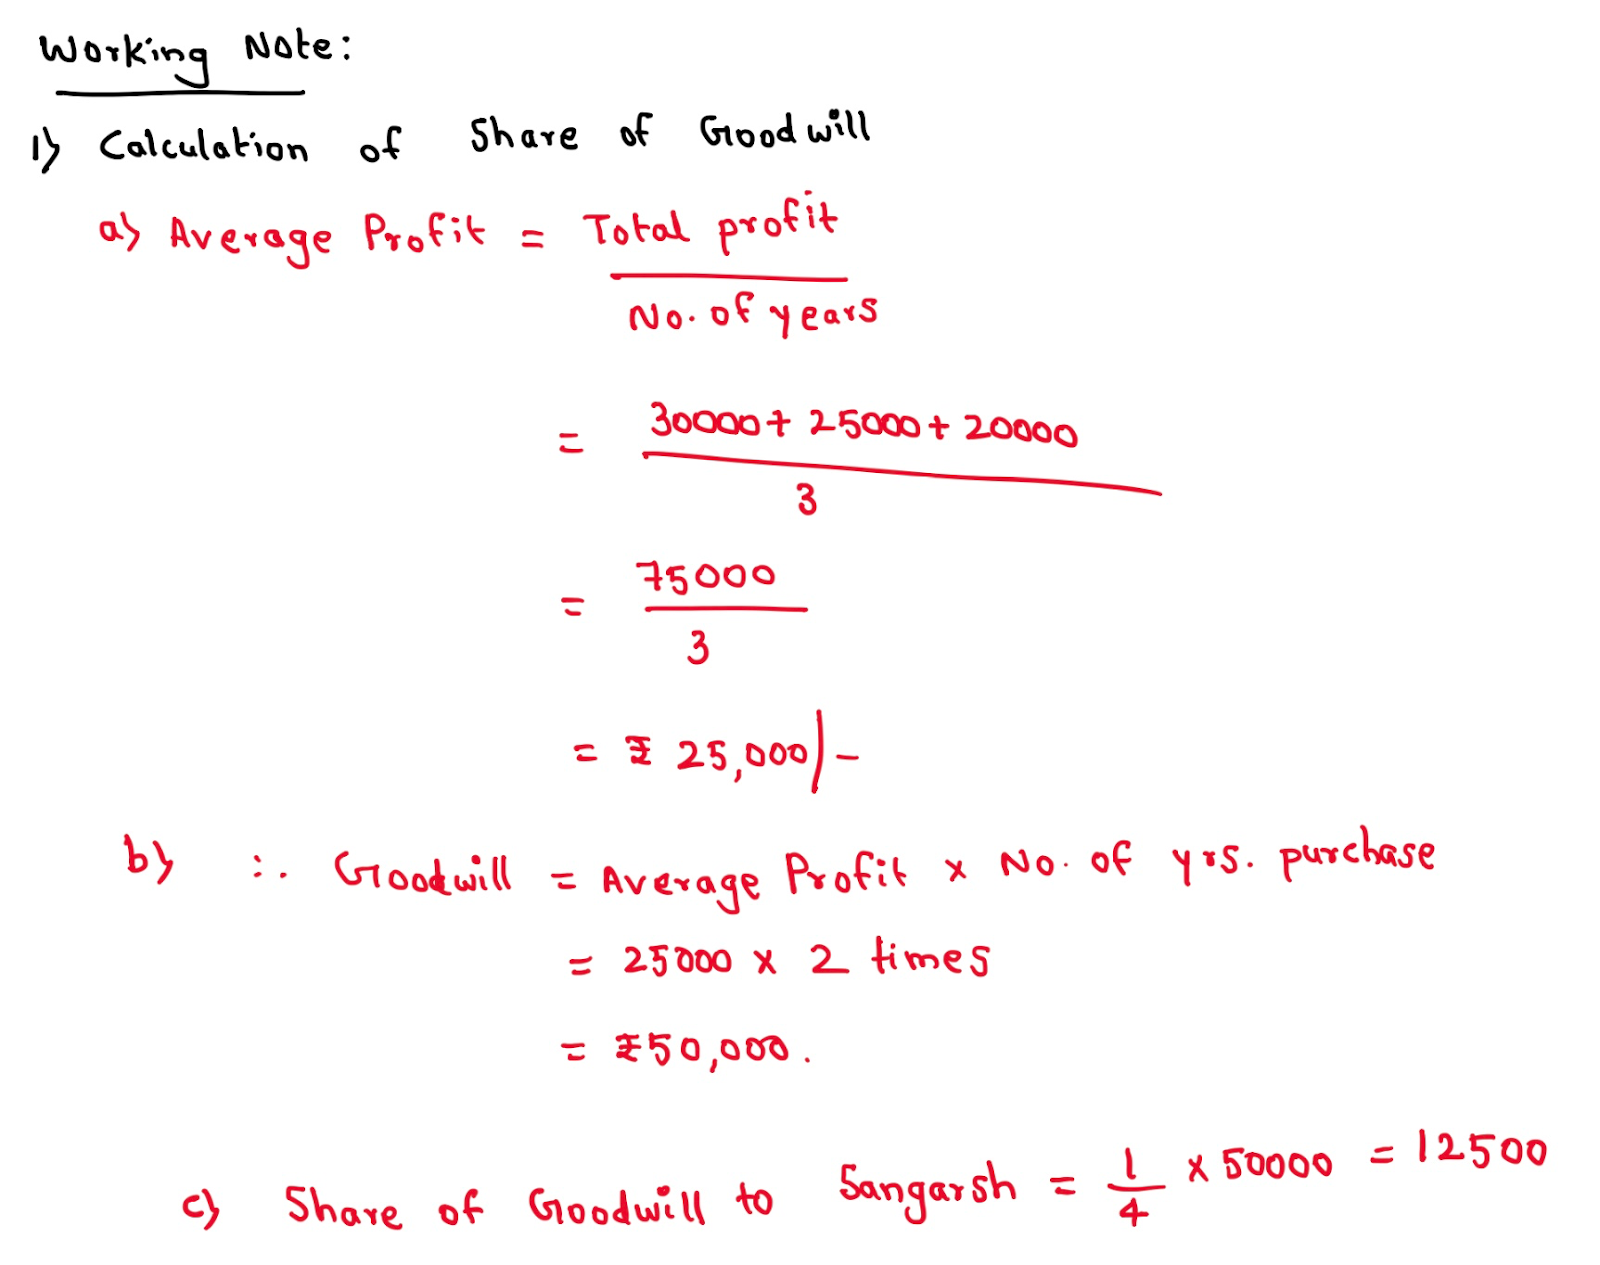 Working Note:
1) Calculation of Share of Goodwill
a) Average Profit = Total profit
No. of years
= 30000 + 25000 + 20000
3
= 75000
3
= ₹ 25,000/-
b) ∴ Goodwill = Average Profit x No. of yrs. purchase
= 25000 x 2 times
= ₹50,000.
c) Share of Goodwill to Sangarsh = 1/4 x 50000 = 12500